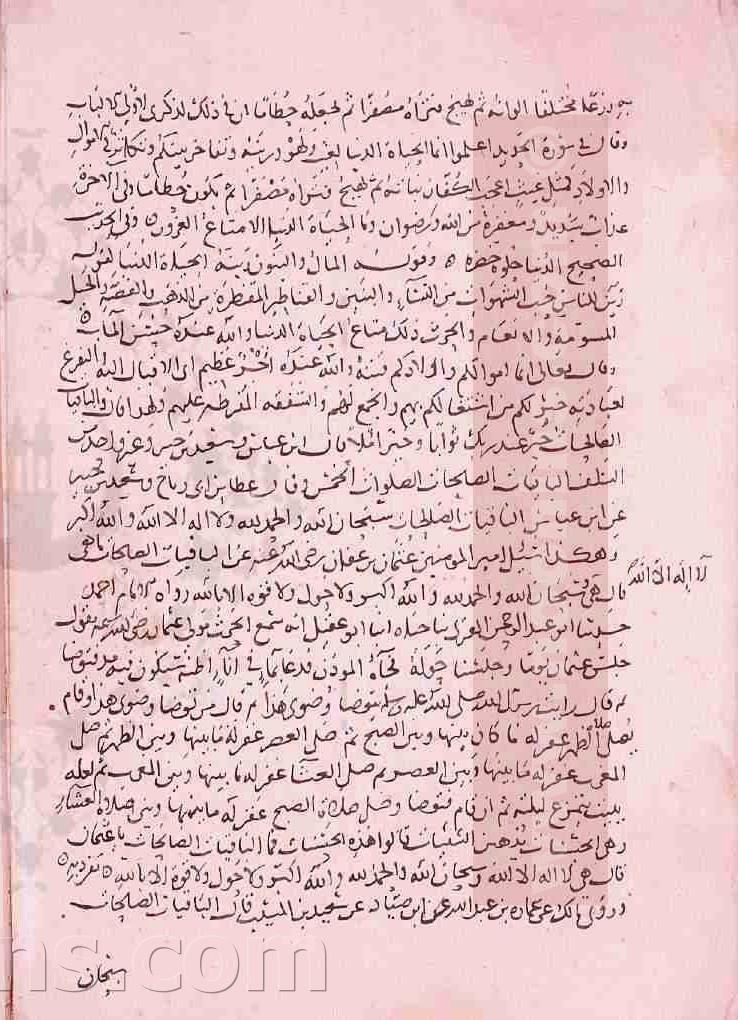 به زرعا مختلفا الوانه ثم يهيج فتراه مصفرا ثم يجعله حطاما ان في ذلك لذكرى لاولي الالباب
وقال في سورة الحديد اعلموا انما الحياة الدنيا لعب ولهو وزينة وتفاخر بينكم وتكاثر في الاموال
والاولاد كمثل غيث اعجب الكفار نباته ثم يهيج فتراه مصفرا ثم يكون حطاما وفي الاخرة
عذاب شديد ومغفرة من الله ورضوان وما الحياة الدنيا الا متاع الغرور وفي الحديث
الصحيح الدنيا حلوة خضرة وقوله المال والبنون زينة الحياة الدنيا كقوله
زين للناس حب الشهوات من النساء والبنين والقناطير المقنطرة من الذهب والفضة والخيل
المسومة والانعام والحرث ذلك متاع الحياة الدنيا والله عنده حسن المآب
وقال تعالى انما اموالكم واولادكم فتنة والله عنده اجر عظيم اي الاقبال اليه والتفرغ
لعبادته خير لكم من اشتغالكم بهم والجمع لهم والشفقة المفرطة عليهم ولهذا قال والباقيات
الصالحات خير عند ربك ثوابا وخير املا قال ابن عباس وسعيد بن جبير وغير واحد من
السلف الباقيات الصالحات الصلوات الخمس وقال عطا بن ابي رباح وسعيد بن جبير
عن ابن عباس الباقيات الصالحات سبحان الله والحمد لله ولا اله الا الله والله اكبر
وهكذا سئل امير المومنين عثمان بن عفان رضي الله عنه عن الباقيات الصالحات ما هي
لا إله الا الله
قال هي سبحان الله والحمد لله والله اكبر ولا حول ولا قوة الا بالله رواه الامام احمد
حدثنا ابو عبد الرحمن المقرئ ثنا حياه انبا ابو عقيل انه سمع الحرث مولى عثمان رضي الله عنه يقول
جلس عثمان يوما وجلسنا حوله فجاه المؤذن فدعا بما في اناء اظنه سيكون فيه مد فتوضا
ثم قال رايت رسول الله صلى الله عليه وسلم يتوضا وضوي هذا ثم قال من توضا وضوي هذا ثم قام
يصلي صلاة الظهر غفر له ما كان بينها وبين الصبح ثم صلى العصر غفر له ما بينها وبين الظهر ثم صلى
المغرب غفر له ما بينها وبين العصر ثم صلى العشا غفر له ما بينها وبين المغرب ثم لعله
يبيت يتمرغ ليلته ثم ان قام فتوضا وصلى صلاة الصبح غفر له ما بينها وبين صلاة العشا
وهي الحسنات يذهبن السيئات قالوا هذه الحسنات فما الباقيات الصالحات يا عثمان
قال هي لا اله الا الله وسبحان الله والحمد لله والله اكبر ولا حول ولا قوة الا بالله تفرد به
وروى مالك عن عماره بن عبد الله عن ابن صياد عن سعيد بن المسيب قال الباقيات الصالحات
سبحان
ns.com